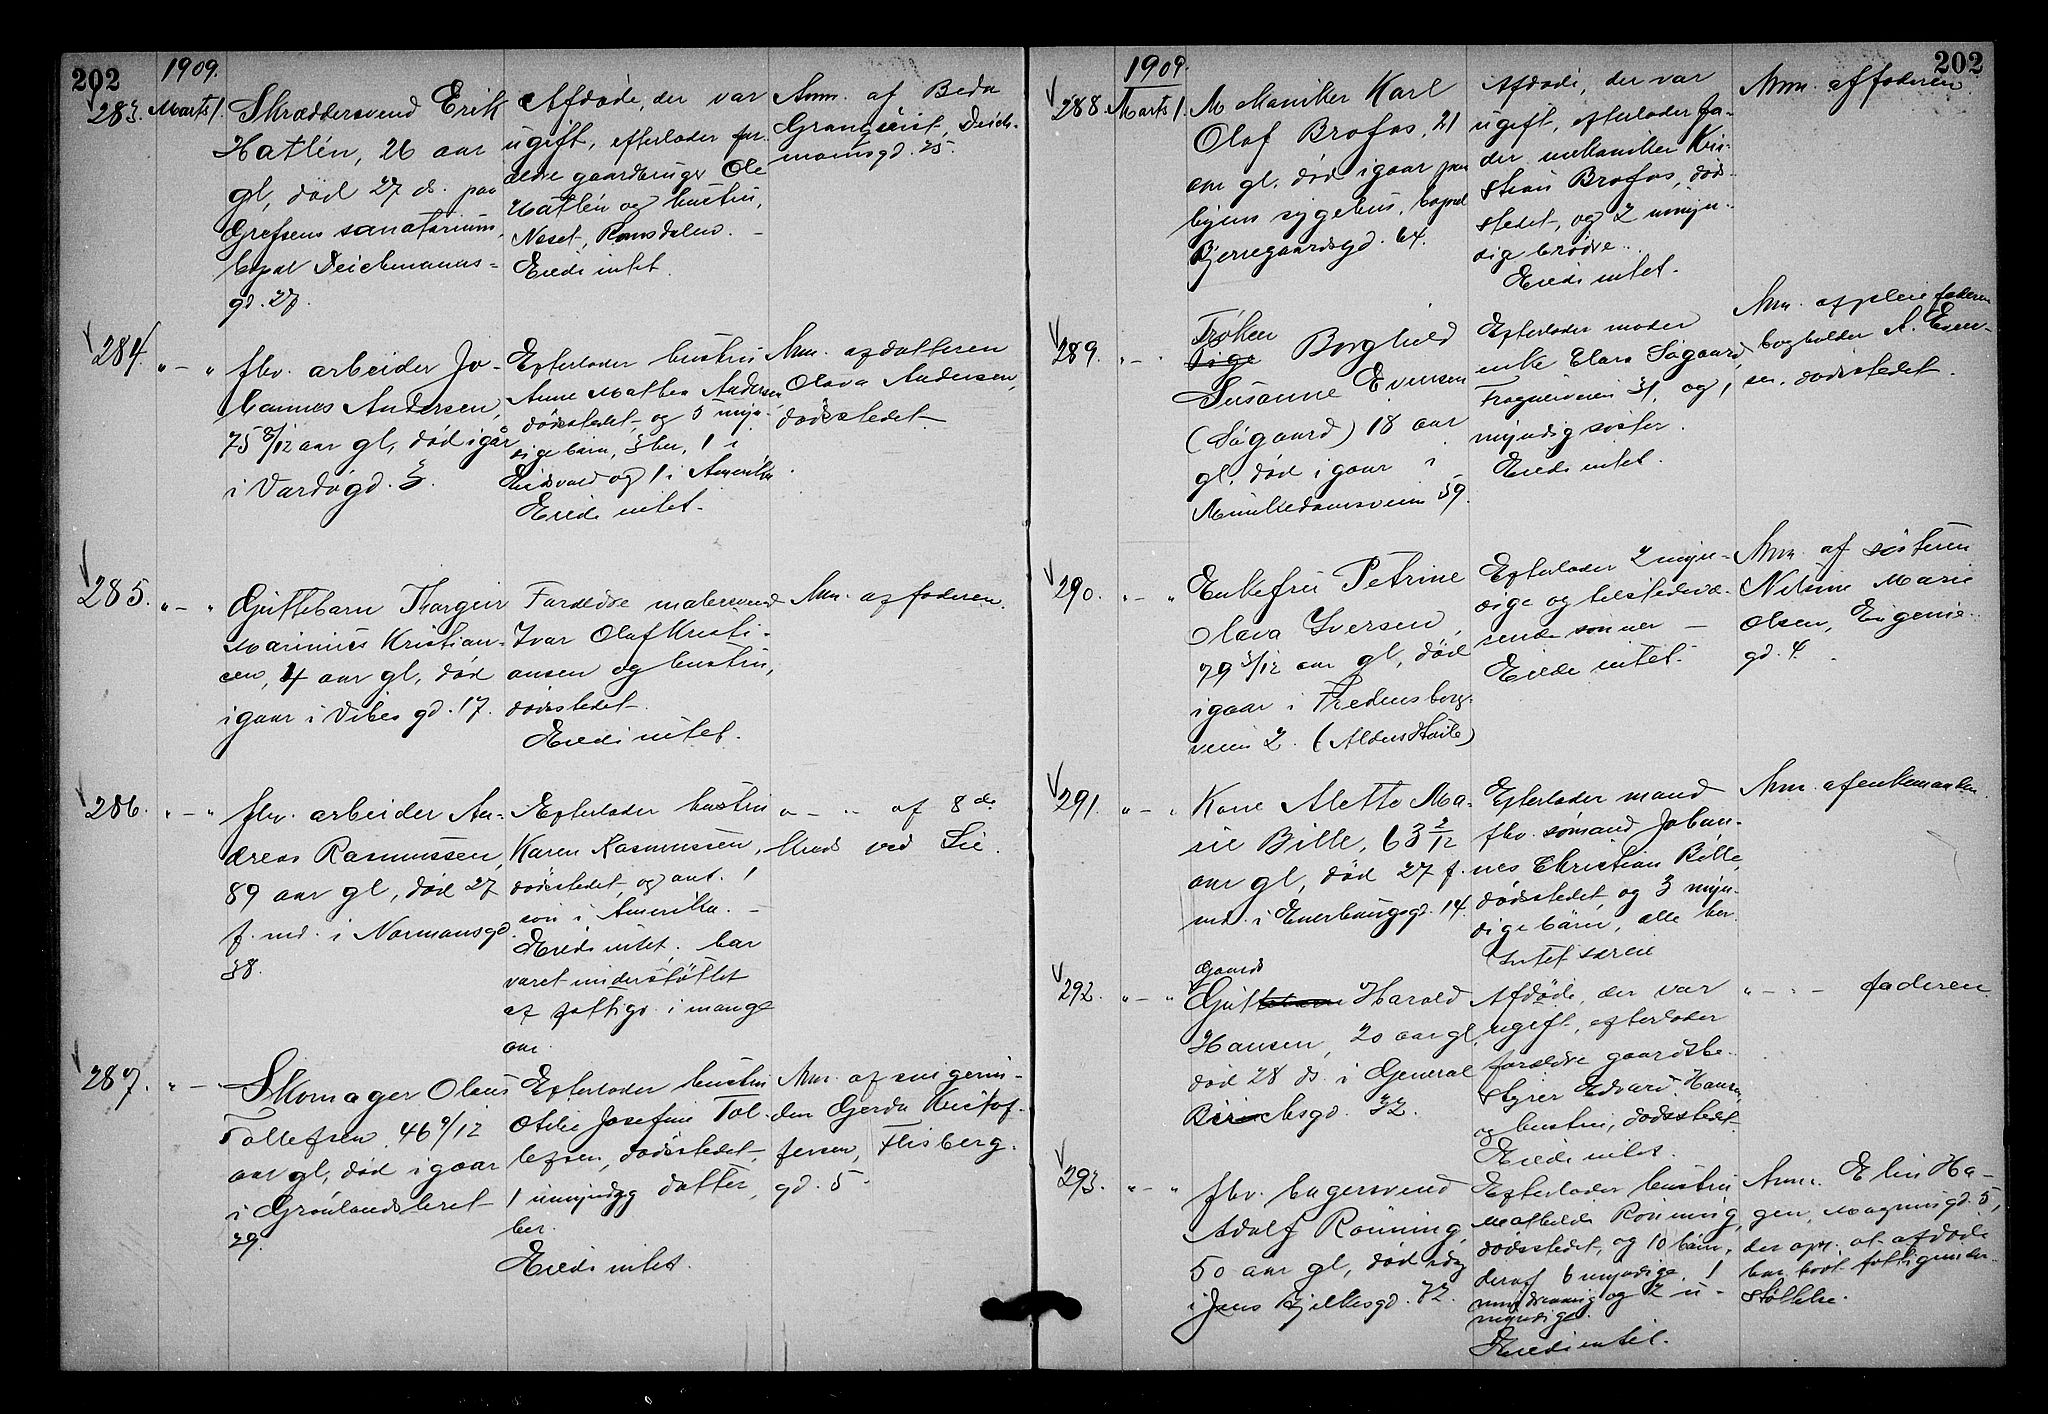 202
1909.
283. Marts 1.
Skræddersvend Erik
Hatlén, 26 aar
gl, død 27 ds. paa
Grefsens sanatorium,
bopæl Deichmanns-
gd. 27.
Afdøde, der var
ugift, efterlader for-
ældre gaardbruger Ole
Hatlén og hustru,
Neset, Romsdalen. -
Eiede intet.
Anm. af Beda
Deich-
mannsgd. 25
284. " - "
fhv. arbeider Jo-
hannes Andersen,
75 8/12 aar gl, død igår
i Vardøgd. 3.
Efterlader hustru
Anne Mathea Andersen
dødsstedet, og 5 myn-
dige børn, 3 her, 1 i
Eidsvold og 1 i Amerika
Eiede intet.
Anm. af datteren
Olava Andersen,
dødsstedet.
285. " - "
Guttebarn Thorgeir
Marinius Kristian-
sen, 4 aar gl, død
igaar i Vibes gd. 17.
Forældre malersvend
Ivar Olaf Kristi-
ansen og hustru,
dødsstedet.
Eiede intet.
Anm. af faderen.
286. " - "
fhv. arbeider An-
dreas Rasmussen,
89 aar gl, død 27
f. md. i Normansgd.
38.
Efterlader hustru
Karen Rasmussen,
dødsstedet, og ant. 1
søn i Amerika. -
Eiede intet. har
været understøttet
af fattigv. i mange
aar.
" - " af 8de
kreds ved Lie.
287. " - "
Skomager Olaus
Tollefsen, 46 9/12
aar gl, død igaar
i Grønlandsleret
39.
Efterlader hustru
Otilie Josefine Tol-
lefsen, dødsstedet,
1 umyndig datter,
her.
Eiede intet.
Anm. af svigerin-
den Gerda Kristof-
fersen, Flisberg-
gd. 5.
202
1909.
288. Marts 1.
Mekaniker Karl
Olaf Brofos, 21
aar gl. død igaar paa
byens sygehus, bopæl
Bjerregaardsgd. 64.
Afdøde, der var
ugift, efterlader fa-
der mekaniker Kris-
tian Brofos, død-
stedet, og 2 umyn-
dige brødre.
Eiede intet.
Anm. af faderen
289. " - "
Frøken
Pige Borghild
Susanne Evensen
(Søgaard) 18 aar
gl, død igaar i
Munkedamsveien 59.
Efterlader moder
enke Clara Søgaard,
Frognerveien 31, og 1
myndig søster.
Eiede intet.
Anm. af pleiefaderen
bogholder A. Even-
sen, dødsstedet.
290. " - "
Enkefru Petrine
Olava Iversen,
79 3/12 aar gl, død
igaar i Fredensborg-
veien 2. (Aldershvile)
Efterlader 2 myn-
dige og tilstedevæ-
rende sønner -
Eiede intet.
Anm. af søsteren
Nilsine Marie
Olsen, Eugenie-
gd. 4.
291. " - "
Kone Alette Ma-
rie Bille, 63 2/12
aar gl, død 27 f.
md. i Enerhaugsgd. 14.
Efterlader mand
fhv. sømand Johan-
nes Christian Bille,
dødsstedet, og 3 myn-
dige børn, alle her.
Intet særeie
Anm. af enkemanden
292. " - "
Gaards
Guttebarn Harald
Hansen, 20 aar gl,
død 28 ds. i General
Birchsgd. 32.
Afdøde, der var
ugift, efterlader
forældre gaardsbe-
styrer Edvard Hansen
og hustru, dødsstedet
Eiede intet.
" - " - faderen
293. " - "
fhv. bagersvend
Adolf Rønning,
50 aar gl, død idag
i Jens Bjelkesgd. 72.
Efterlader hustru
Mathilde Rønning,
dødsstedet, og 10 børn,
deraf 6 myndige, 1
mindreaarig og 2 u-
myndige.
Eiede intet.
Anm. Elin Ha-
gen, Magnusgd. 5,
der opl. at afdøde
har havt fattigunder-
støttelse.